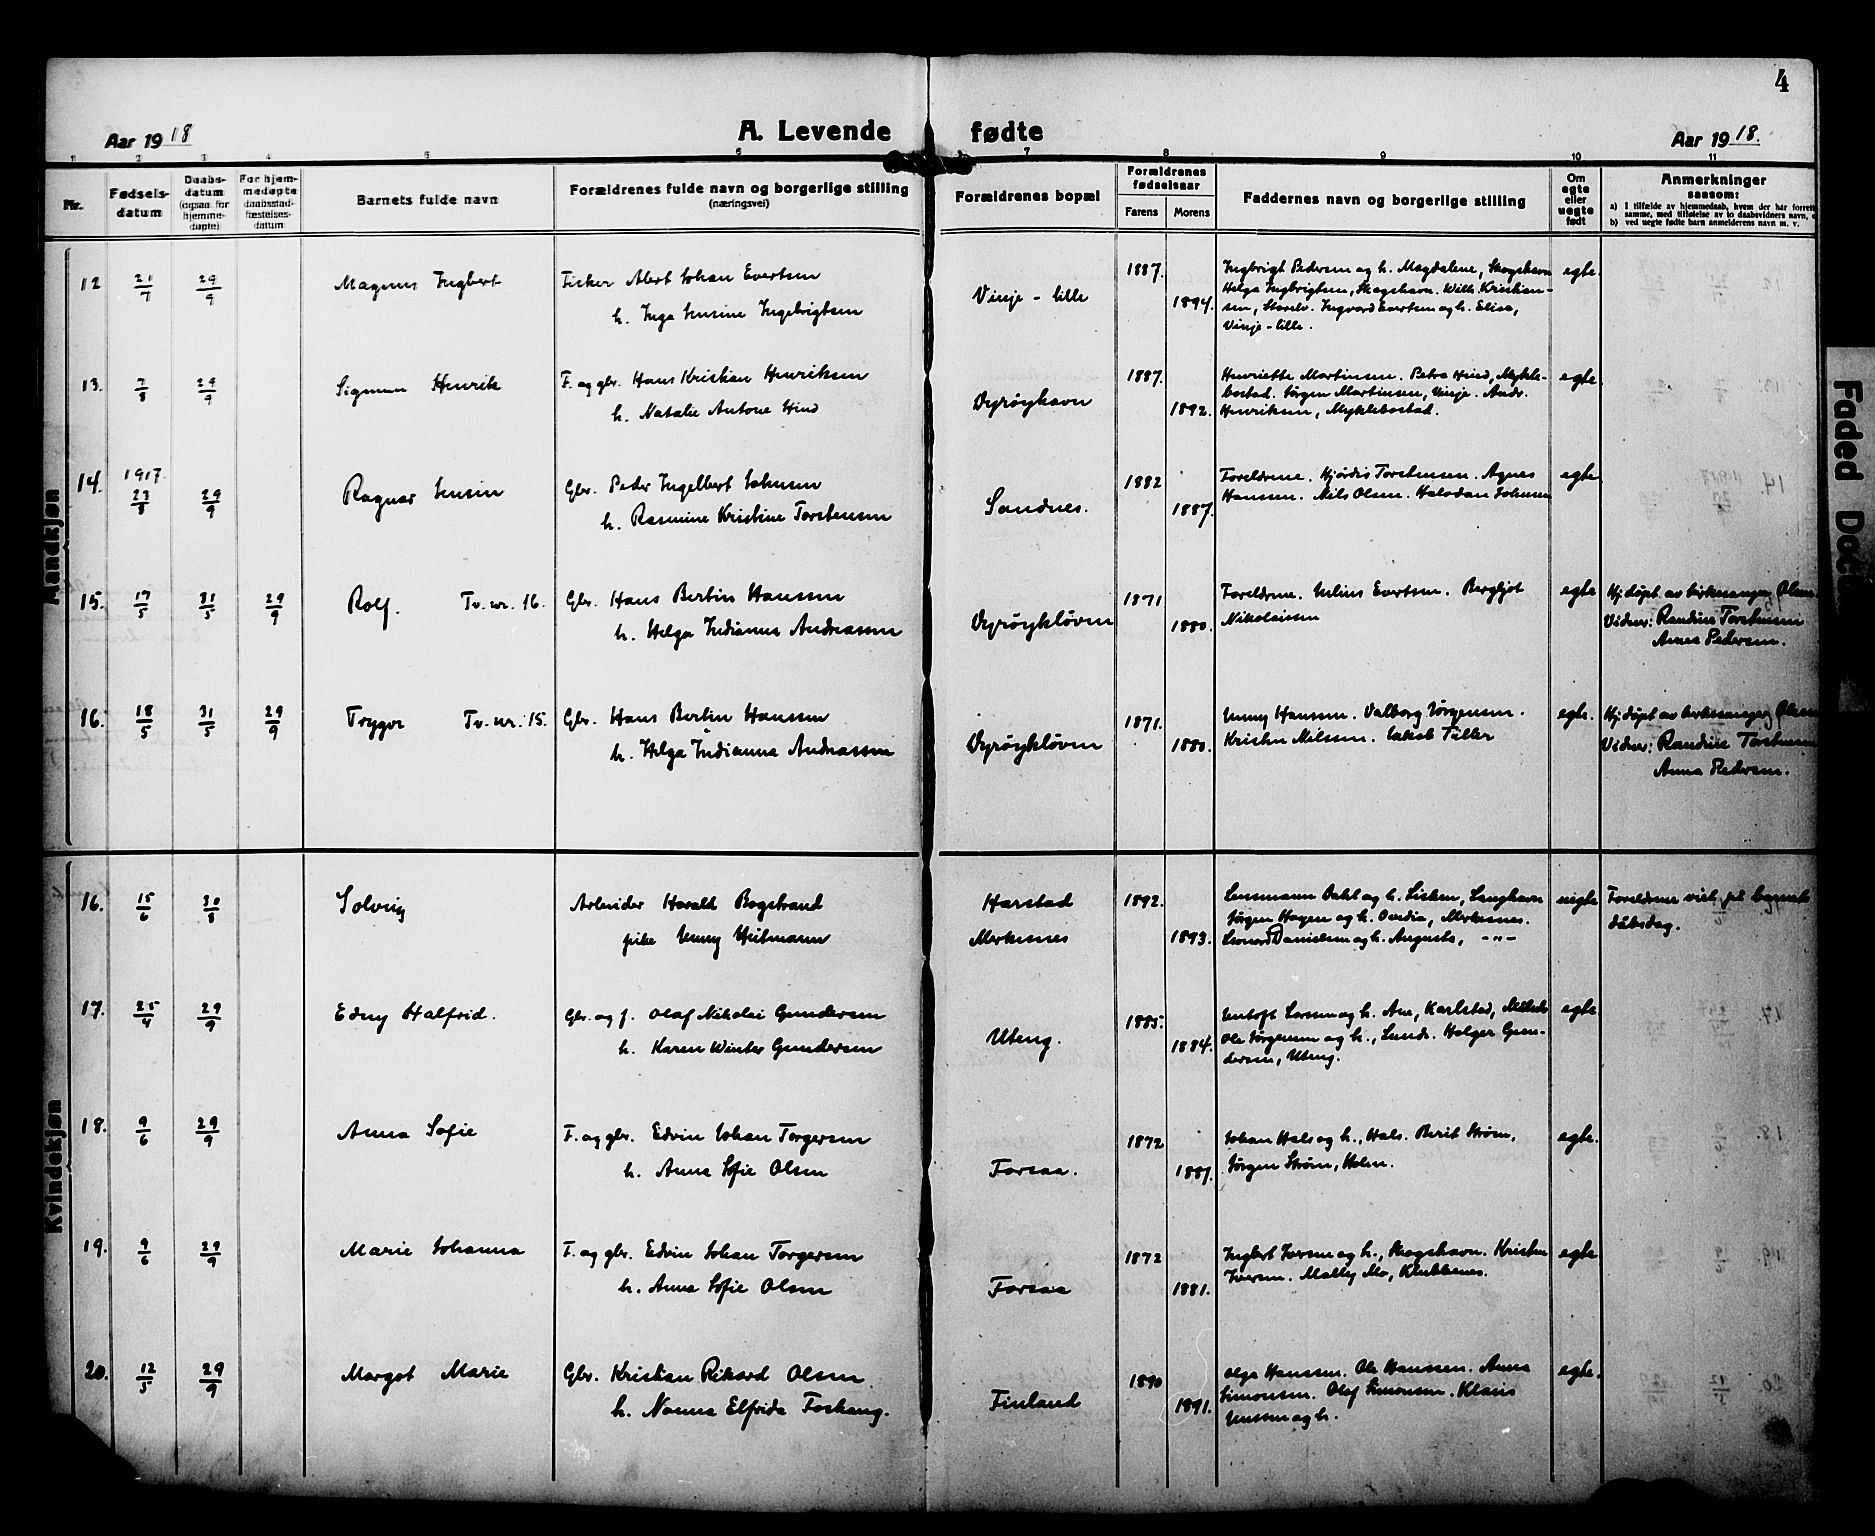 4
Aar 1918
A. Levende fødte
Aar 1918.
1 2 3 4 5 6 7 8 9 10 11
Nr.
Fødsels-
datum
Daabs-
datum
(ogsaa for
hjemme-
døpte)
For hjem-
medøpte
daabsstad-
fæstelses-
datum
Barnets fulde navn
Forældrenes fulde navn og borgerlige stilling
(næringsvei)
Forældrenes bopæl
Forældrenes
fødselsaar
Farens Morens
Faddernes navn og borgerlige stilling
Om
egte
eller
uegte
født
Anmerkninger
saasom:
a) I tilfælde av hjemmedaab, hvem der har forret
samme, med tilføielse av to daabsvidners navn,
b) ved uegte fødte barn anmelderens navn m. v.
Mandkjøn
12 21/7 29/9 Magnus Ingbert
Fisker Albert Johan Evertsen
h. Inga Jensine Ingebrigtsen
Vinje - lille
1887.
1894.
Ingbrigt Pedersen og h. Magdalene, Skogshavn
Helga Ingbrigtsen, Skogshavn. Wilh. Kristian-
sen, Ingvard Evertsen og h. Elisa,
Vinje - lille.
egte.
13. 7/8 29/9 Sigmun Henrik
F. og gbr. Hans Kristian Henriksen
h. Natalie Antone Hind
Dyrøyhavn
1887.
1892.
Henriette Martinsen. Petra Hind, Mykle-
bostad. Jørgen Martinsen, Vinje. Andr.
Henriksen, Myklebostad.
egte.
14. 1917. 23/8 29/9 Ragnar Jensin
Gbr. Peder Ingelbert Johnsen
h. Rasmine Kristine Torstensen
Sandnes.
1882
1887.
Foreldrene. Hjørdis Torstensen. Agnes
Hanssen. Nils Olsen. Halvdan Johnsen
egte
15. 17/5 31/5 29/9 Rolf. Tv. nr. 16.
Gbr. Hans Bertin Hanssen
h. Helga Indianna Andreassen
Dyrøykløven
1871
1880.
Foreldrene. Julius Evertsen. Bergljot
Nikolaissen
egte
Hj. døpt av kirkesanger Olsen.
Vidner: Randine Torstensen
Anna Pedersen.
16. 18/5 31/5 29/9 Trygve Tv. nr. 15.
Gbr. Hans Bertin Hanssen
h. Helga Indianna Andreassen
Dyrøykløven
1871.
1880.
Jenny Hanssen. Valborg Jørgensen.
Kristen Nilssen. Jakob Tiller
egte.
Hj. døpt av kirkesanger Olsen
Vidner: Randine Torstensen
Anna Pedersen.
Kvindekjøn
16. 15/6 30/8 Solveig
Arbeider Harald Bogstrand
pike Jenny Heitmann
Harstad
Merkesnes
1892.
1893.
Lensmann Dahl og h. Lisken, Langhavn
Jørgen Hagen og h. Ovedia, Merkesnes.
Leonard Danielsen og h. Augusta, -"-
uegte
Foreldrene viet på barnets
dåbsdag.
17. 25/4 29/9 Edny Halfrid.
Gbr. og f. Olaf Nikolai Gundersen
h. Karen Winter Gundersen
Uteng.
1885.
1884.
Larsen og h. Ane, Karlstad,
Ole Jørgensen og h., Lunde. Holger Gun-
dersen, Uteng.
egte
18. 9/6 29/9 Anna Sofie
F. og gbr. Edvin Johan Torgersen
h. Anna Sofie Olsen
Forsaa.
1872
1881.
Johan Hals og h., Hals. Berit Strøm,
Jørgen Strøm, Holm.
egte.
19. 9/6 29/9 Marie Johanna
F. og gbr. Edvin Johan Torgersen
h. Anna Sofie Olsen
Forsaa
1872
1881.
Ingbert Iversen og h., Skogshavn. Kristen
Iversen. Mally Mo, Klubbenes.
egte
20. 12/5 29/9 Margot Marie
Gbr. Kristian Rikard Olsen.
h. Nanna Elfrida Foshaug.
Finland
1890
1891.
Olga Hanssen. Ole Hanssen. Anna
Simonsen. Olaf Simonsen. Klaus
Jenssen og h.
egte.
Faded Docu